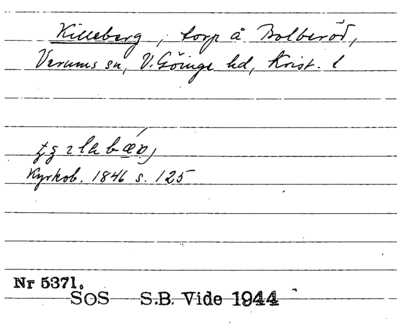 Killeberg, torp å Bolberöd,
Verums sn, V. Göinge hd, Krist. l
Kyrkob. 1846 s. 125
Nr 5371.
SOS S.B. Vide 1944